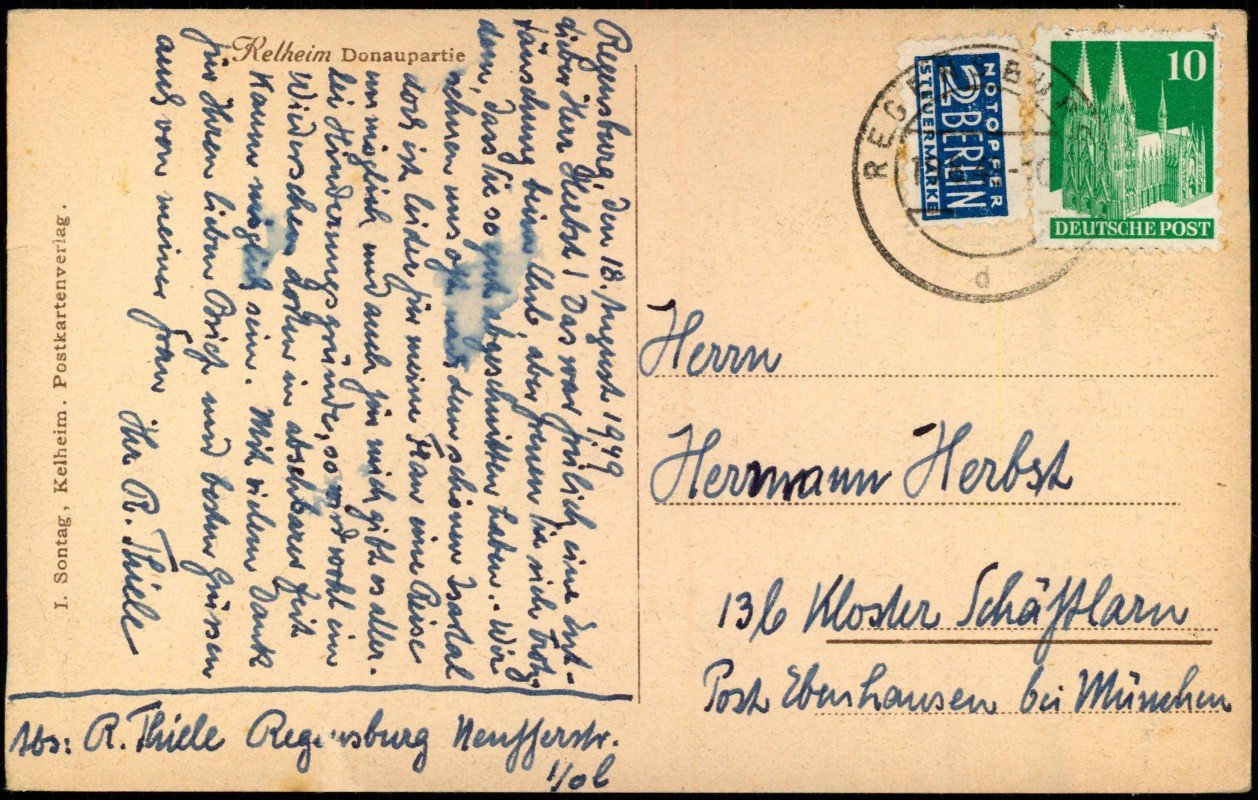 Kelheim Donaupartie
I. Sontag, Kelheim. Postkartenverlag.
Regensburg, den 18. August 1949
Lieber Herr Herbst! Das war freilich eine Ent-
täuschung beim Club, aber freuen Sie sich trotz-
dem, dass Sie so gut abgeschnitten haben. - Wir
sehnen uns oft nach dem schönen Isartal
doch ist leider für meine Frau eine Reise
unmöglich und auch für mich gibt es aller-
lei Hinderungsgründe, so wird wohl ein
Wiedersehen dorten in absehbarer Zeit
kaum möglich sein. Mit vielem Dank
für Ihren lieben Brief und besten Grüssen
auch von meiner Frau
Ihr R. Thiele
Abs: R. Thiele Regensburg Neufferstr.
1/0 b
NOTOPFER
2 BERLIN
STEUERMARKE
10
DEUTSCHE POST
REGENSBURG
d
Herrn
Hermann Herbst
13b Kloster Schäftlarn
Post Ebenhausen bei München